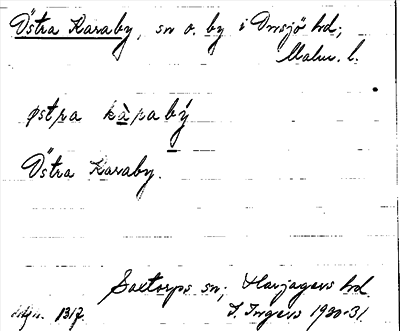 Östra Karaby, sn o. by i Onsjö hd,
Malm. l.
østra kàrabý
Östra Karaby.
Saxtorps sn; Harjagers hd.
1317. I. Ingers 1930-31.